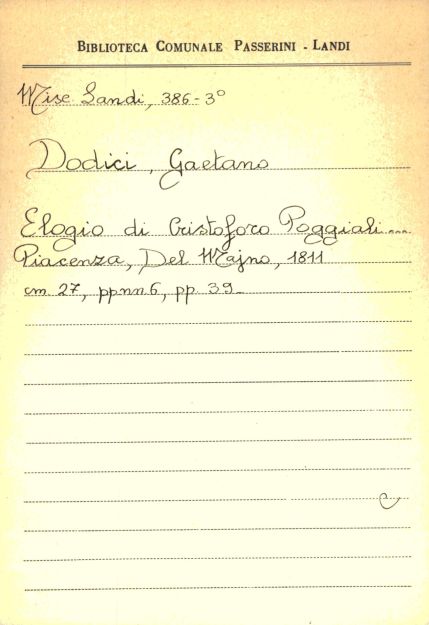 BIBLIOTECA COMUNALE PASSERINI - LANDI
Misc Landi, 386-3°
Dodici, Gaetano
Elogio di Cristoforo Poggiali...
Piacenza, Del Majno, 1811
cm 27, ppnn 6, pp 39_
C